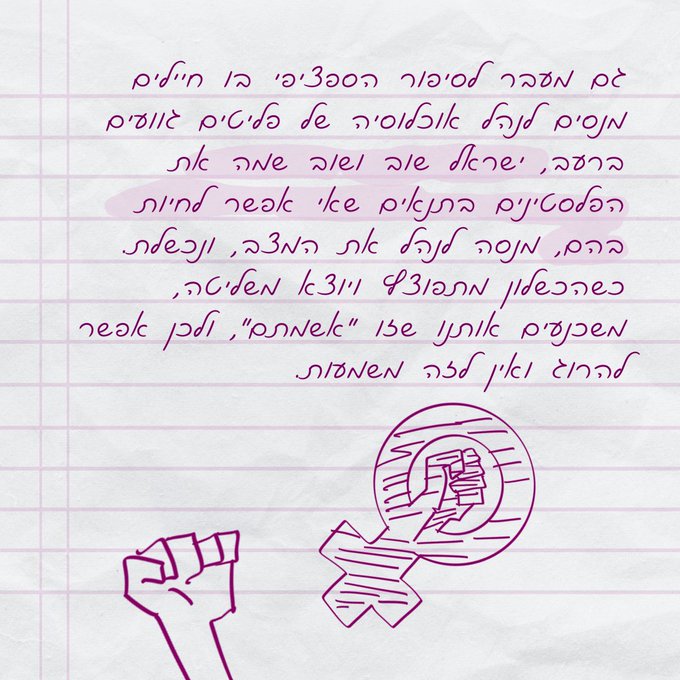 גם מעבר לסיפור הספציפי בו חיילים
מנסים לנהל אוכלוסיה של פליטים גוועים
ברעב, ישראל שוב ושוב שמה את
הפלסטינים בתנאים שאי אפשר לחיות
בהם, מנסה לנהל את המצב, ונכשלת.
כשהכשלון מתפוצץ ויוצא משליטה,
משכנעים אותנו שזו "אשמתם", ולכן אפשר
להרוג ואין לזה משמעות.